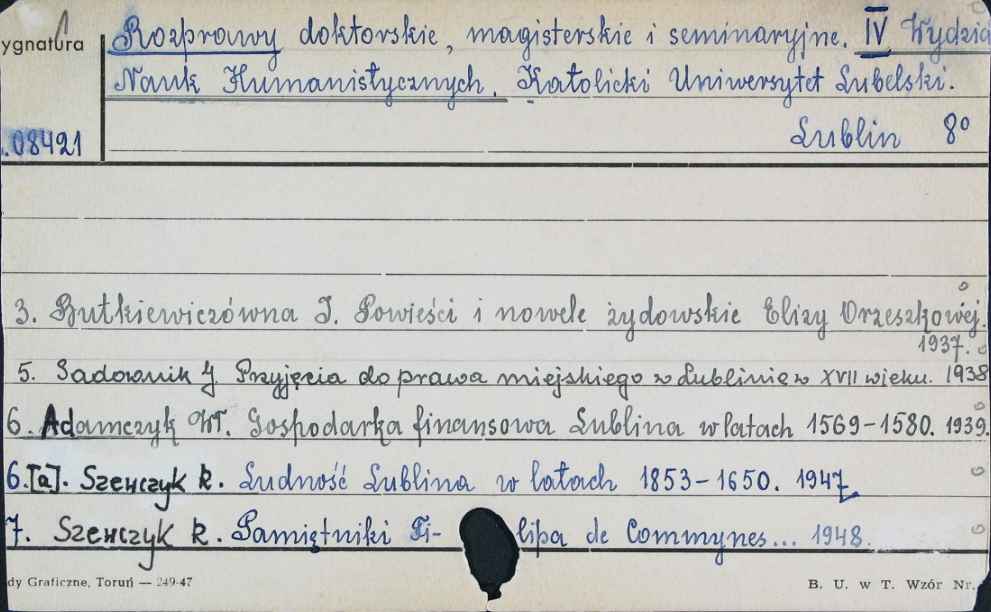 ygnatura
Rozprawy doktorskie, magisterskie i seminaryjne. IV Wydzia
Nauk Humanistycznych. Katolicki Uniwersytet Lubelski.
.08421
Lublin 8º
3. Butkiewiczówna I. Powieści i nowele żydowskie Elizy Orzeszkowej.
1937.
5. Sadownik J. Przyjęcia do prawa miejskiego w Lublinie w XVII wieku. 1938
6. Adamczyk Wł. Gospodarka finansowa Lublina w latach 1569-1580. 1939.
6.[a]. Szewczyk R. Ludność Lublina w latach 1853-1650. 1947
7. Szewczyk R. Pamiętniki Fi-lipa de Commynes... 1948.
dy Graficzne, Toruń — 249-47
B. U. w T. Wzór Nr.